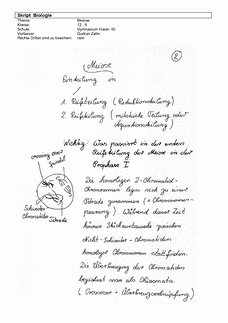 Skript Biologie
Thema: Meiose
Klasse: 12 , 9
Schule: Gymnasium Huber, IG
Verfasser: Gudrun Zahn
Rechte Dritter sind zu beachten: nein
2
Meiose
Einteilung in
1. Reifeteilung (Reduktionsteilung)
2. Reifeteilung (mitotische Teilung oder
Äquationsteilung)
Wichtig: Was passiert in der ersten
Reifeteilung der Meiose in der
Prophase I
crossing over
Die homologen 2-Chromatid-
Chromosomen legen sich zu einer
Tetrade zusammen (= Chromosomen-
paarung). Während dieser Zeit
können Stückaustausche zwischen
Nicht-Schwester-Chromatiden
homologer Chromosomen stattfinden.
Schwester
chromatiden
Tetrade
Die Überkreuzung der Chromatiden
bezeichnet man als Chiasmata.
(Crossover = Überkreuzverknüpfung)